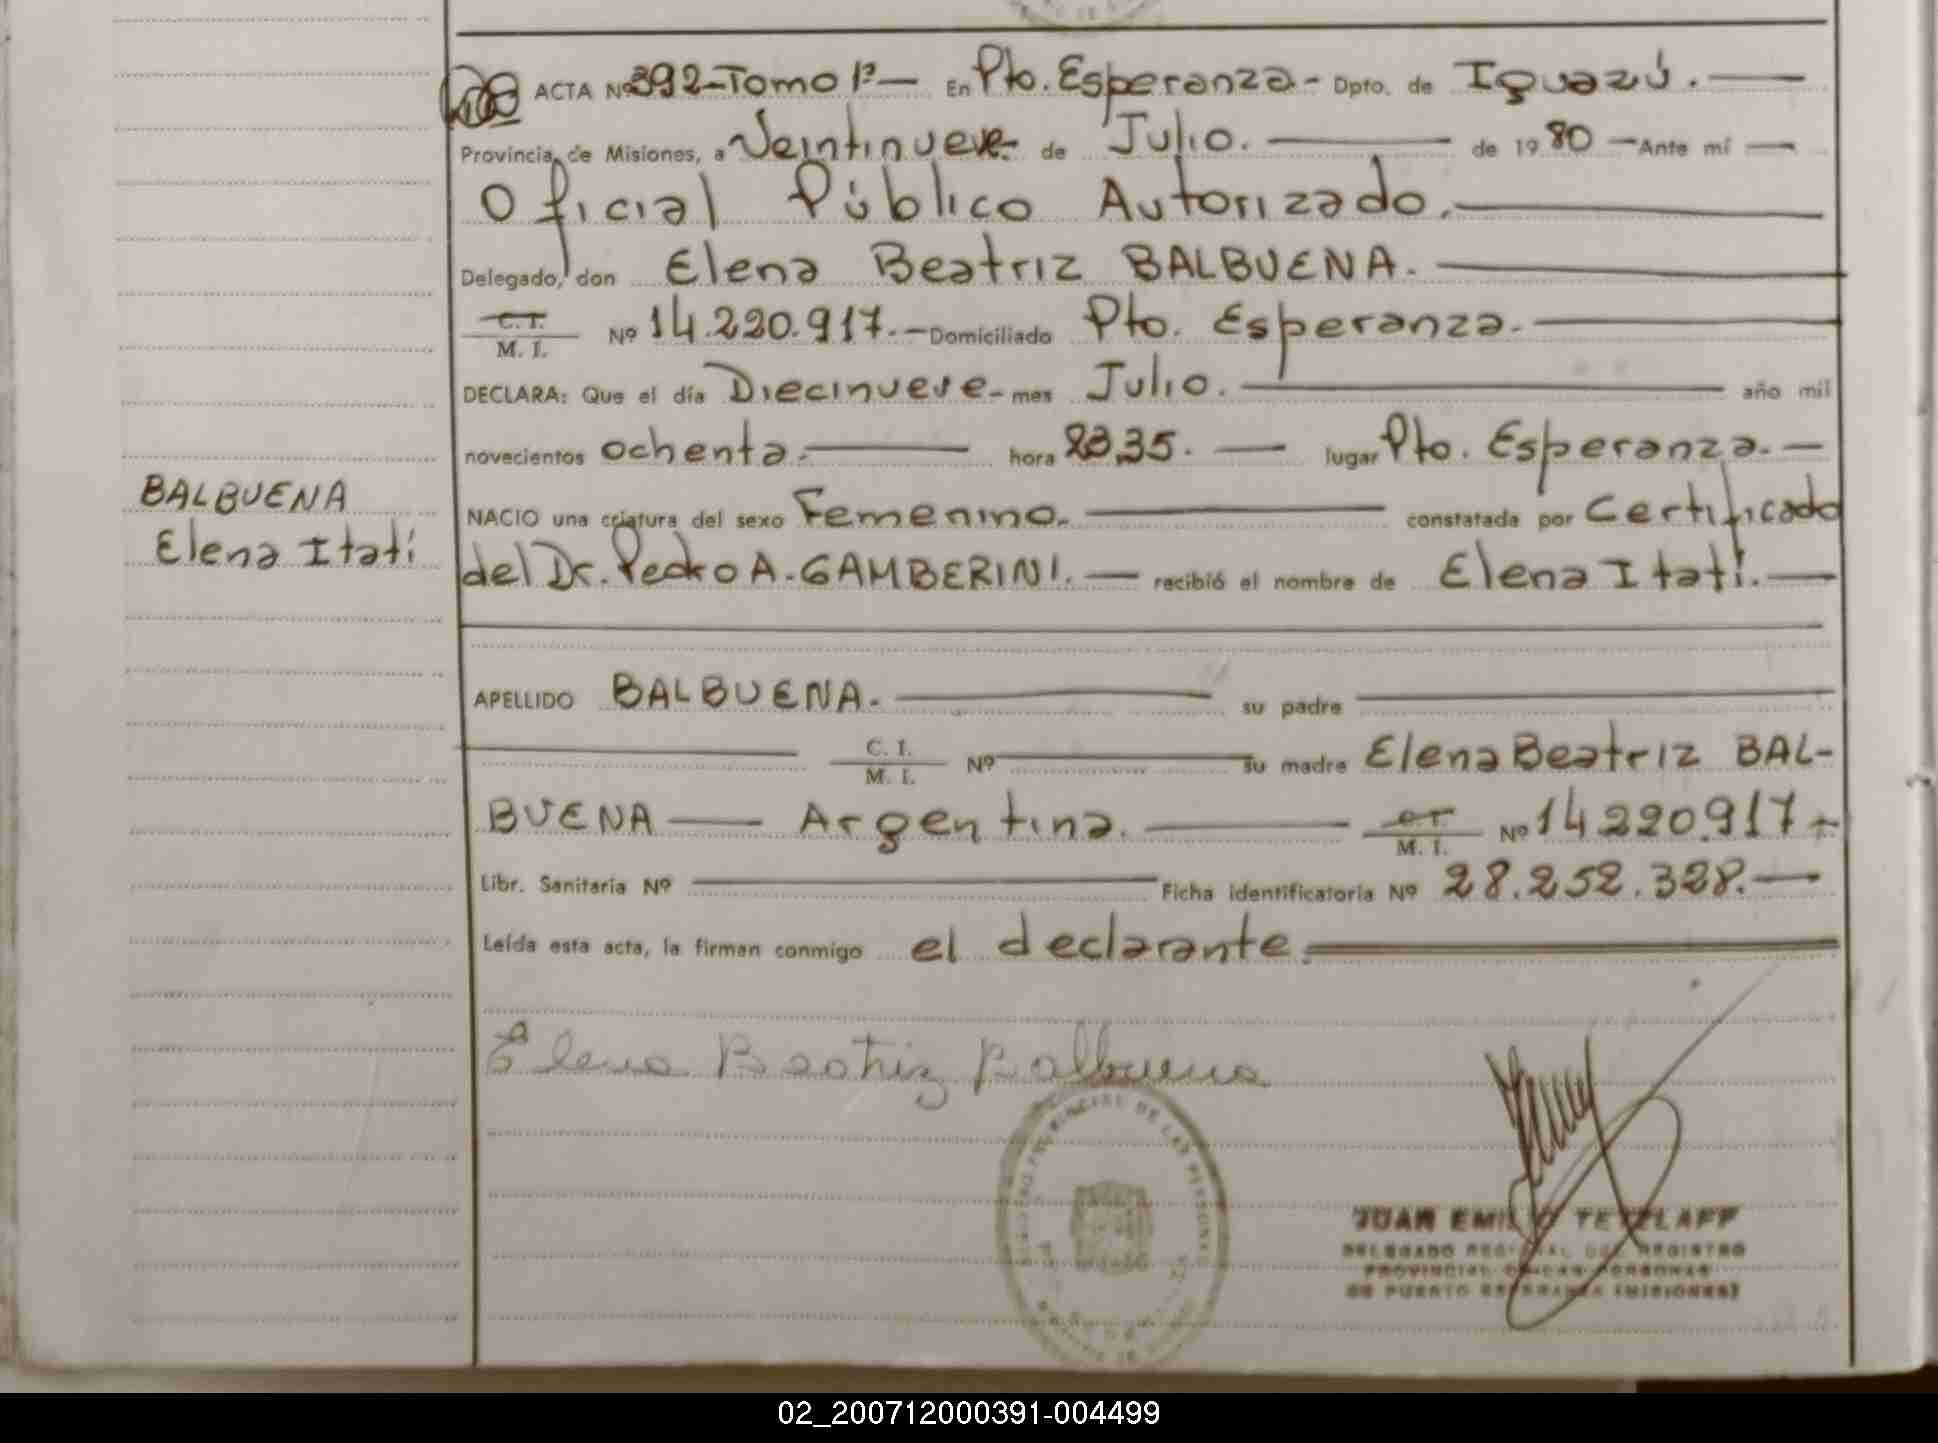 ACTA Nº 392-Tomo 1º — En Pto. Esperanza - Dpto. de Iguazú.
Provincia de Misiones, a Veintinueve - de Julio. de 1980 — Ante mí
Oficial Público Autorizado.
Delegado, don Elena Beatriz BALBUENA.
C.I. M. I. Nº 14.220.917. — Domiciliado Pto. Esperanza.
DECLARA: Que el día Diecinueve - mes Julio. año mil
novecientos ochenta. hora 23,35. — lugar Pto. Esperanza. —
BALBUENA
Elena Itatí
NACIO una criatura del sexo Femenino. constatada por Certificado
del Dr. Pedro A. GAMBERINI. — recibió el nombre de Elena Itatí. —
APELLIDO BALBUENA. su padre
C. I. M. I. Nº su madre Elena Beatriz BAL-
BUENA — Argentina. C.I. M. I. Nº 14.220.917 -
Libr. Sanitaria Nº Ficha identificatoria Nº 28.252.328. —
Leída esta acta, la firman conmigo el declarante.
Elena Beatriz Balbuena
REGISTRO PROVINCIAL DE LAS PERSONAS
JUAN EMILIO TETZLAFF
DELEGADO REGIONAL DEL REGISTRO
PROVINCIAL DE LAS PERSONAS
DE PUERTO ESPERANZA (MISIONES)
02_200712000391-004499